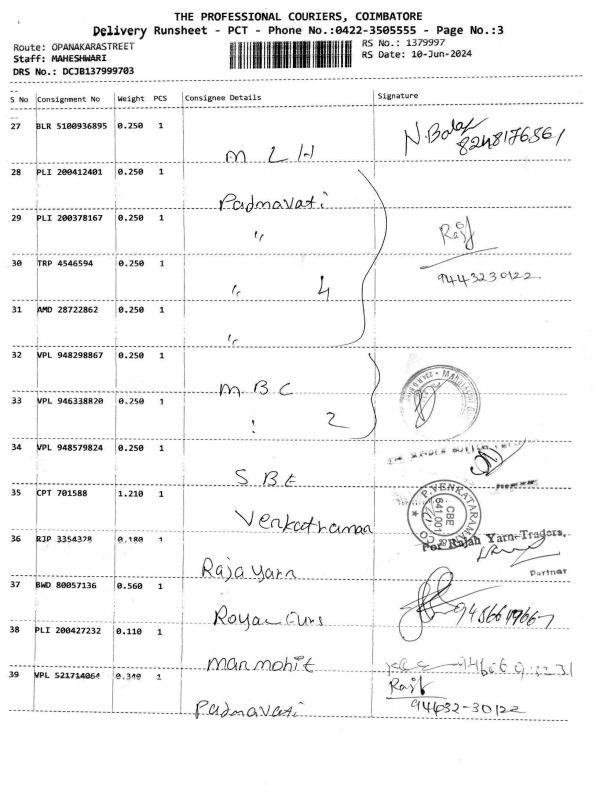 THE PROFESSIONAL COURIERS, COIMBATORE
Delivery Runsheet - PCT - Phone No.:0422-3505555 - Page No.:3
Route: OPANAKARASTREET
RS No.: 1379997
Staff: MAHESHWARI
RS Date: 10-Jun-2024
DRS No.: DCJB137999703
S No Consignment No Weight PCS Consignee Details Signature
27 BLR 5100936895 0.250 1
M L H
28 PLI 200412401 0.250 1
Padmavati
29 PLI 200378167 0.250 1
"
Raj
30 TRP 4546594 0.250 1
" 4
9443230122
31 AMD 28722862 0.250 1
"
32 VPL 948298867 0.250 1
M B C
33 VPL 946338820 0.250 1
2
34 VPL 948579824 0.250 1
S B E
35 CPT 701588 1.210 1
Venkatraman
P.VENKATARAMAN
CBE
641.001
& CO
36 RJP 3354328 0.180 1
For Rajah Yarn Traders,
Raja yarn
Partner
37 BWD 80057136 0.560 1
38 PLI 200427232 0.110 1
manmohit
39 VPL 521714064 0.340 1
Raj
Padmavati
94432-30122